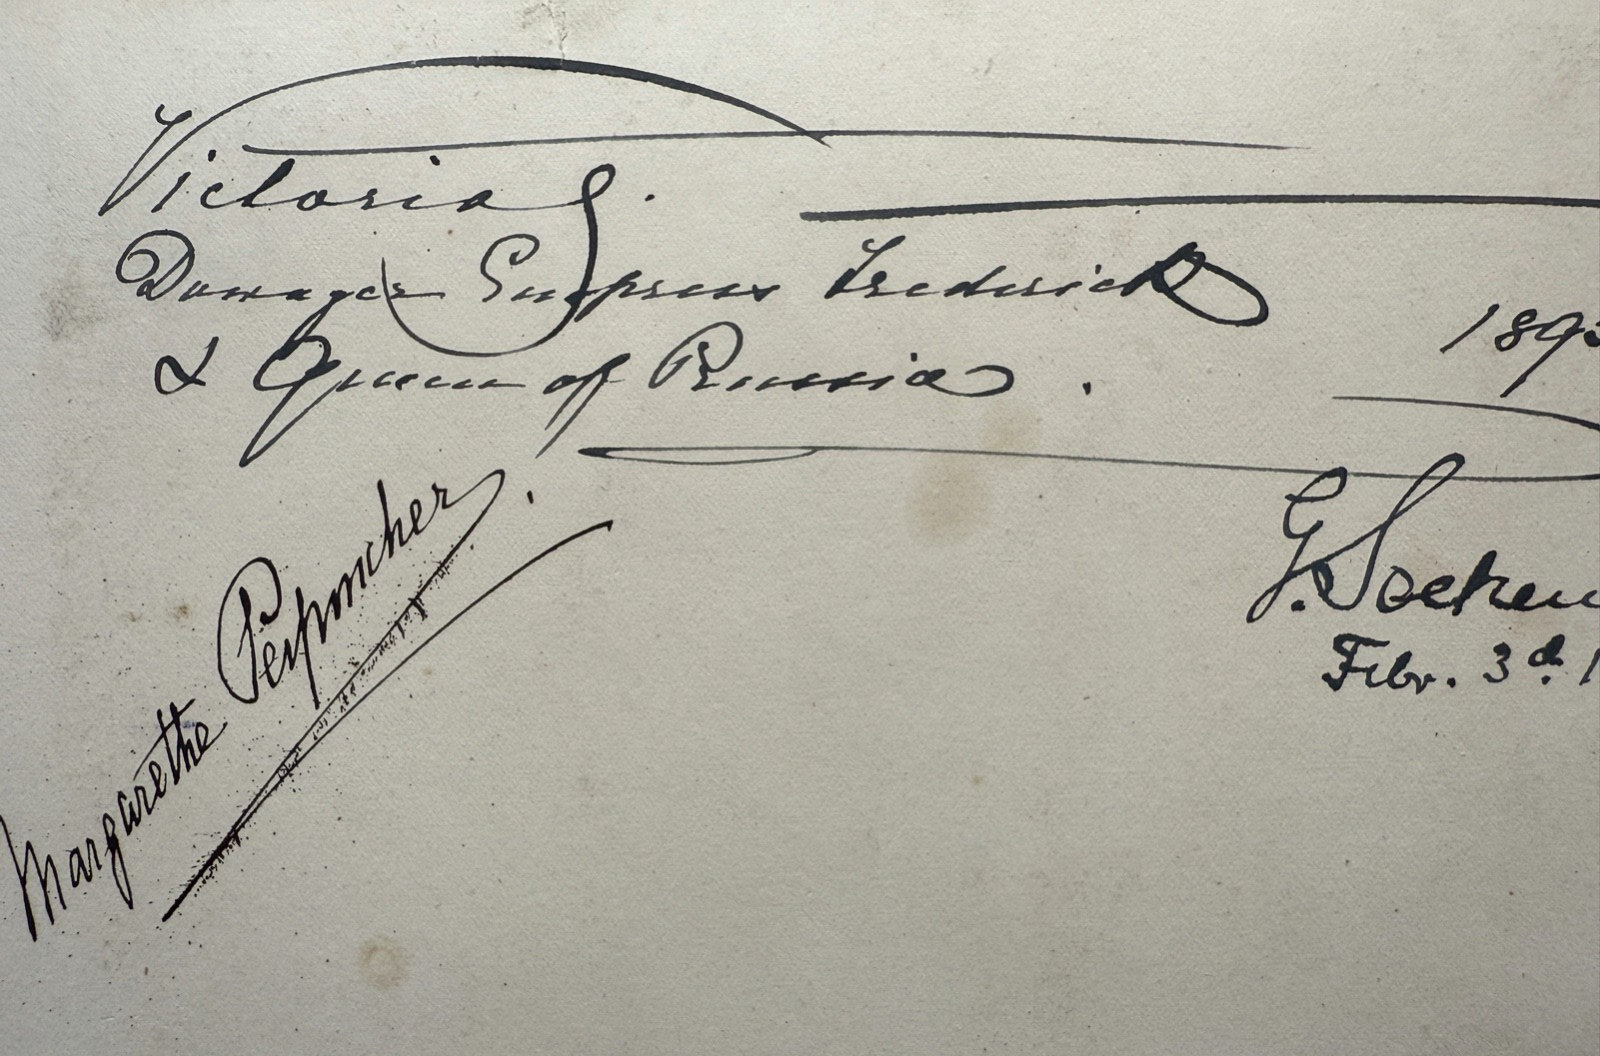 Victoria
Dowager Empress Frederick
& Queen of Prussia.
189
Margarethe Perponcher.
G.
Febr. 3d. 1